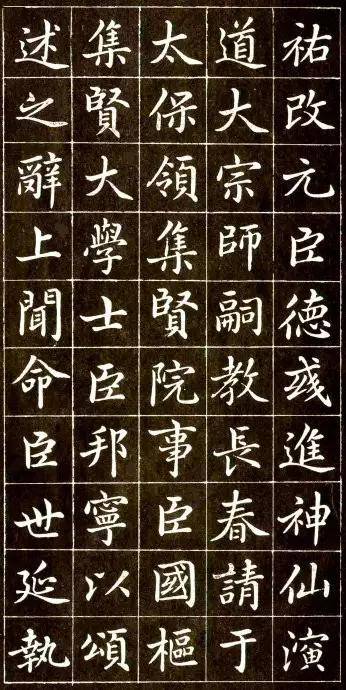 祐改元臣德彧進神仙演
道大宗師嗣教長春請于
太保領集賢院事臣國樞
集賢大學士臣邦寧以頌
述之辭上聞命臣世延執